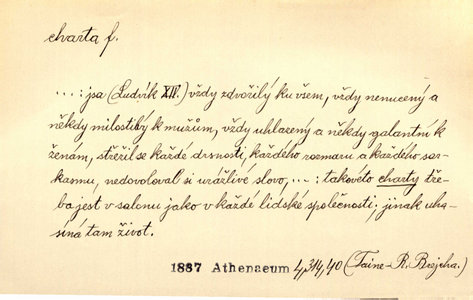 charta f.
...: jsa (Ludvík XIV.) vždy zdvořilý ku všem, vždy nenucený a
někdy milostibý k mužům, vždy uhlazený a někdy galantní k
ženám, střežil se každé drsnosti, každého rozmaru a každého sar-
kasmu, nedovoloval si urážlivé slovo, ...: takovéto charty tře-
ba jest v salonu jako v každé lidské společnosti; jinak uha-
síná tam život.
1887 Athenaeum 4,314,40 (Taine-R. Brejcha.)